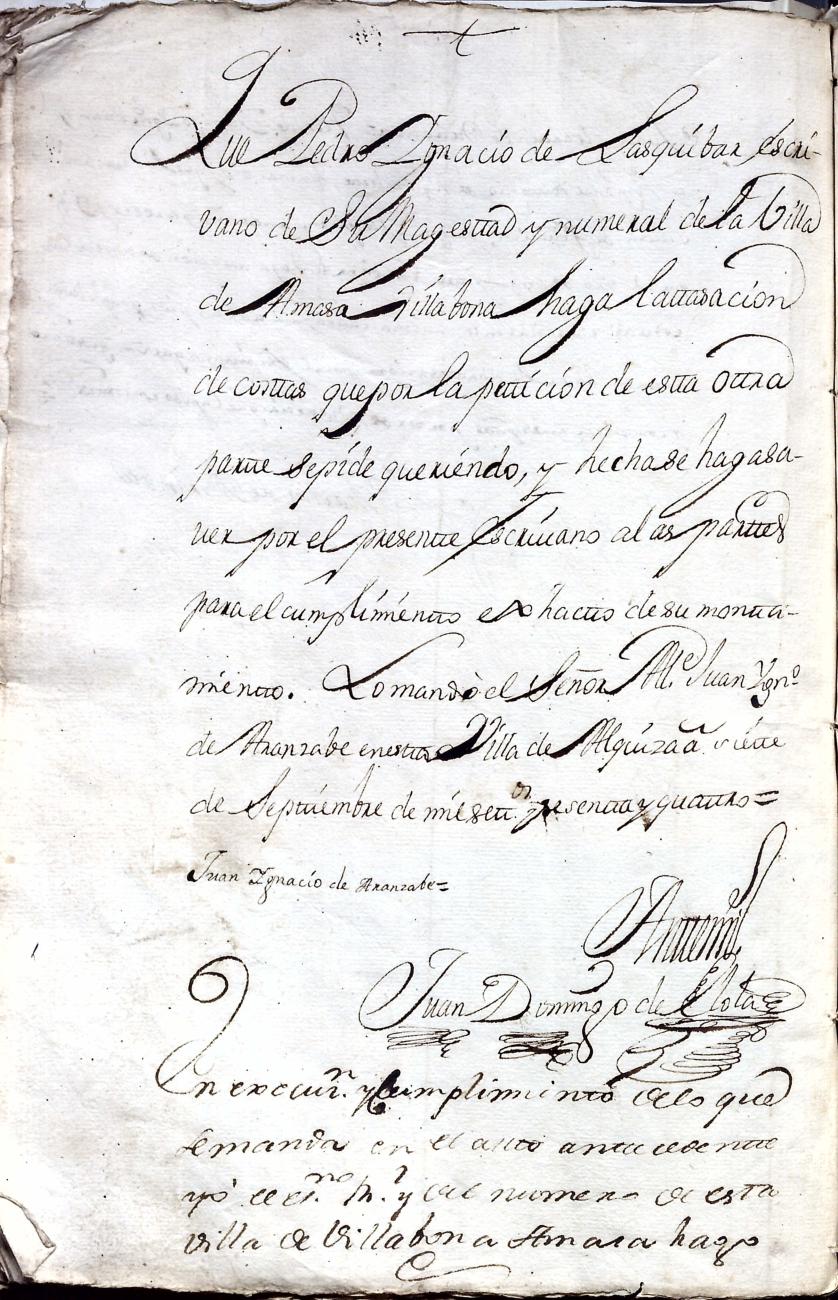 Que Pedro Ygnacio de Lasquibar escri-
vano de Su Magesttad y numeral de la Villa
de Amasa Villabona haga la ttasacion
de costtas que por la petticion de estta ottra
partte se pide queriendo, y hecha se haga sa-
ver por el presentte Escrivano a las parttes
para el cumplimientto exhactto de su montta-
mientto. Lo mandò el Señor All.e Juan Ygn.o
de Aranzabe en estta Villa de Alquiza à siette
de Septtiembre de mil sett.os y sesentta y quattro=
Juan Ygnacio de Aranzabe=
Antte mi
Juan Domingo de
En execuz.n y Cumplimiento de lo que
se manda en el autto anttecedentte
yo el es.no R.l y del numero de esta
villa de Villabona Amasa hago